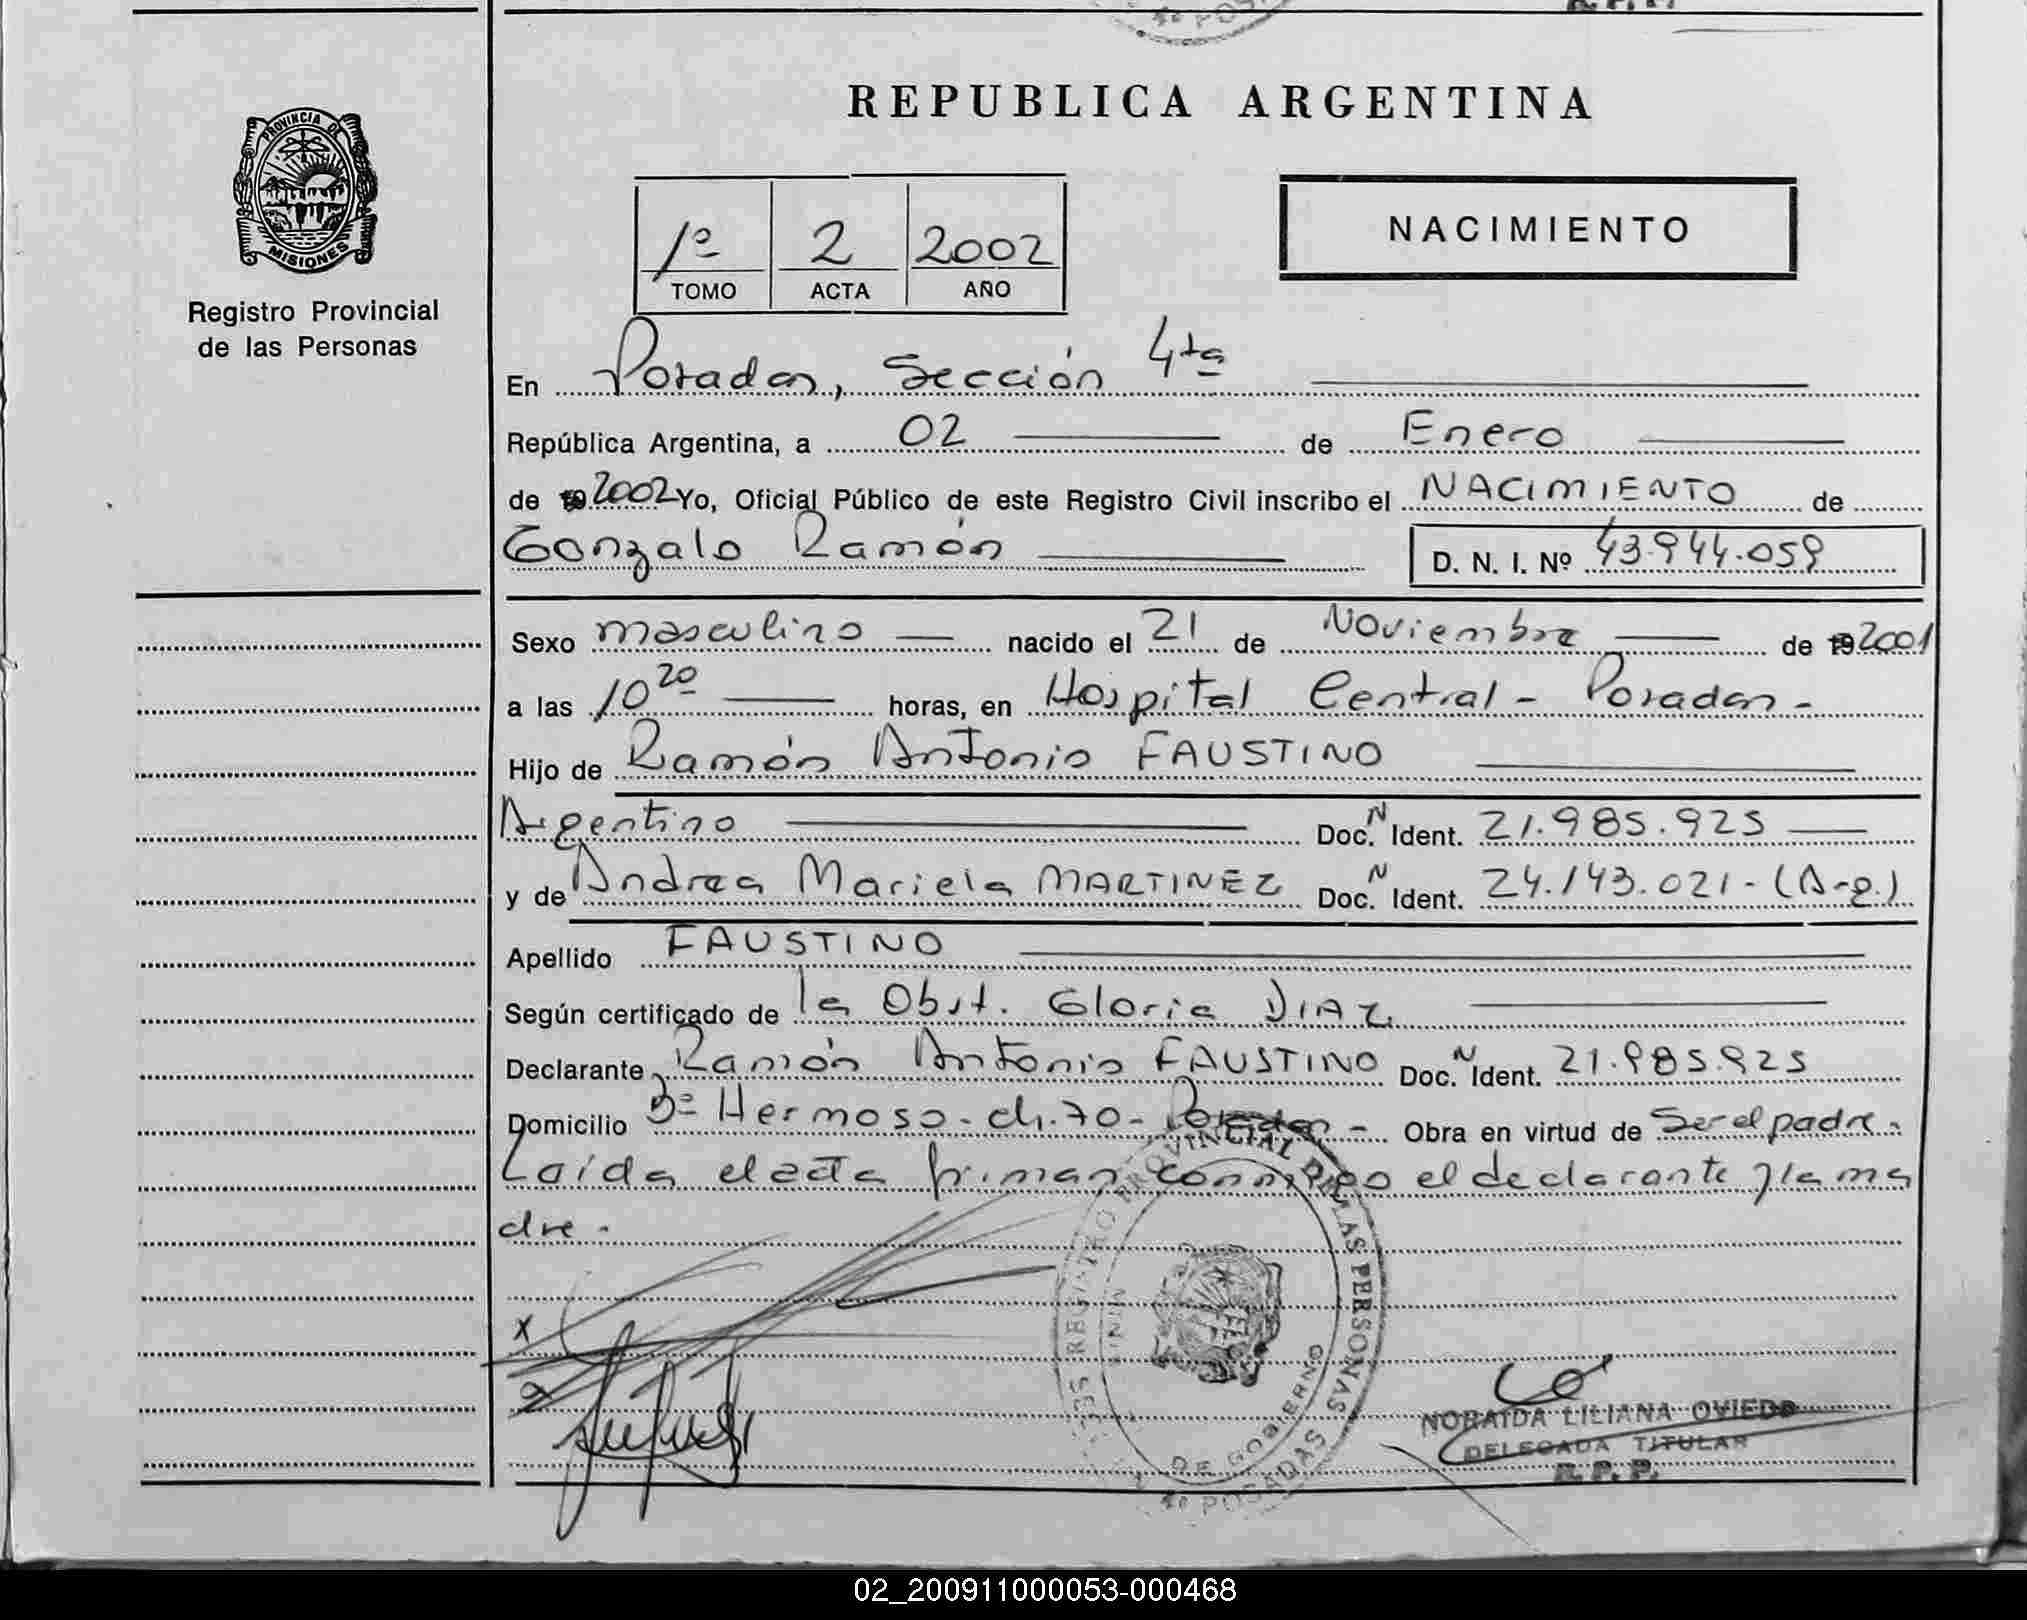 REPUBLICA ARGENTINA
PROVINCIA DE MISIONES
Registro Provincial
de las Personas
1º 2 2002
TOMO ACTA AÑO
NACIMIENTO
En Posadas, Sección 4ta
República Argentina, a 02 de Enero
de 19 2002 Yo, Oficial Público de este Registro Civil inscribo el NACIMIENTO de
Gonzalo Ramón D. N. I. Nº 43.944.059
Sexo masculino nacido el 21 de Noviembre de 19 2001
a las 10 20 horas, en Hospital Central - Posadas -
Hijo de Ramón Antonio FAUSTINO
Argentino Doc. N Ident. 21.985.925
y de Andrea Mariela MARTINEZ Doc. N Ident. 24.143.021 - (Arg.)
Apellido FAUSTINO
Según certificado de la Obst. Gloria DIAZ
Declarante Ramón Antonio FAUSTINO Doc. N Ident. 21.985.925
Domicilio Bº Hermoso - ch. 70 - Posadas - Obra en virtud de Ser el padre -
Laída el acta firman conmigo el declarante y la ma
dre -
REGISTRO PROVINCIAL DE LAS PERSONAS
DE GOBIERNO
POSADAS
NORAIDA LILIANA OVIEDO
DELEGADA TITULAR
R. P. P.
02_200911000053-000468